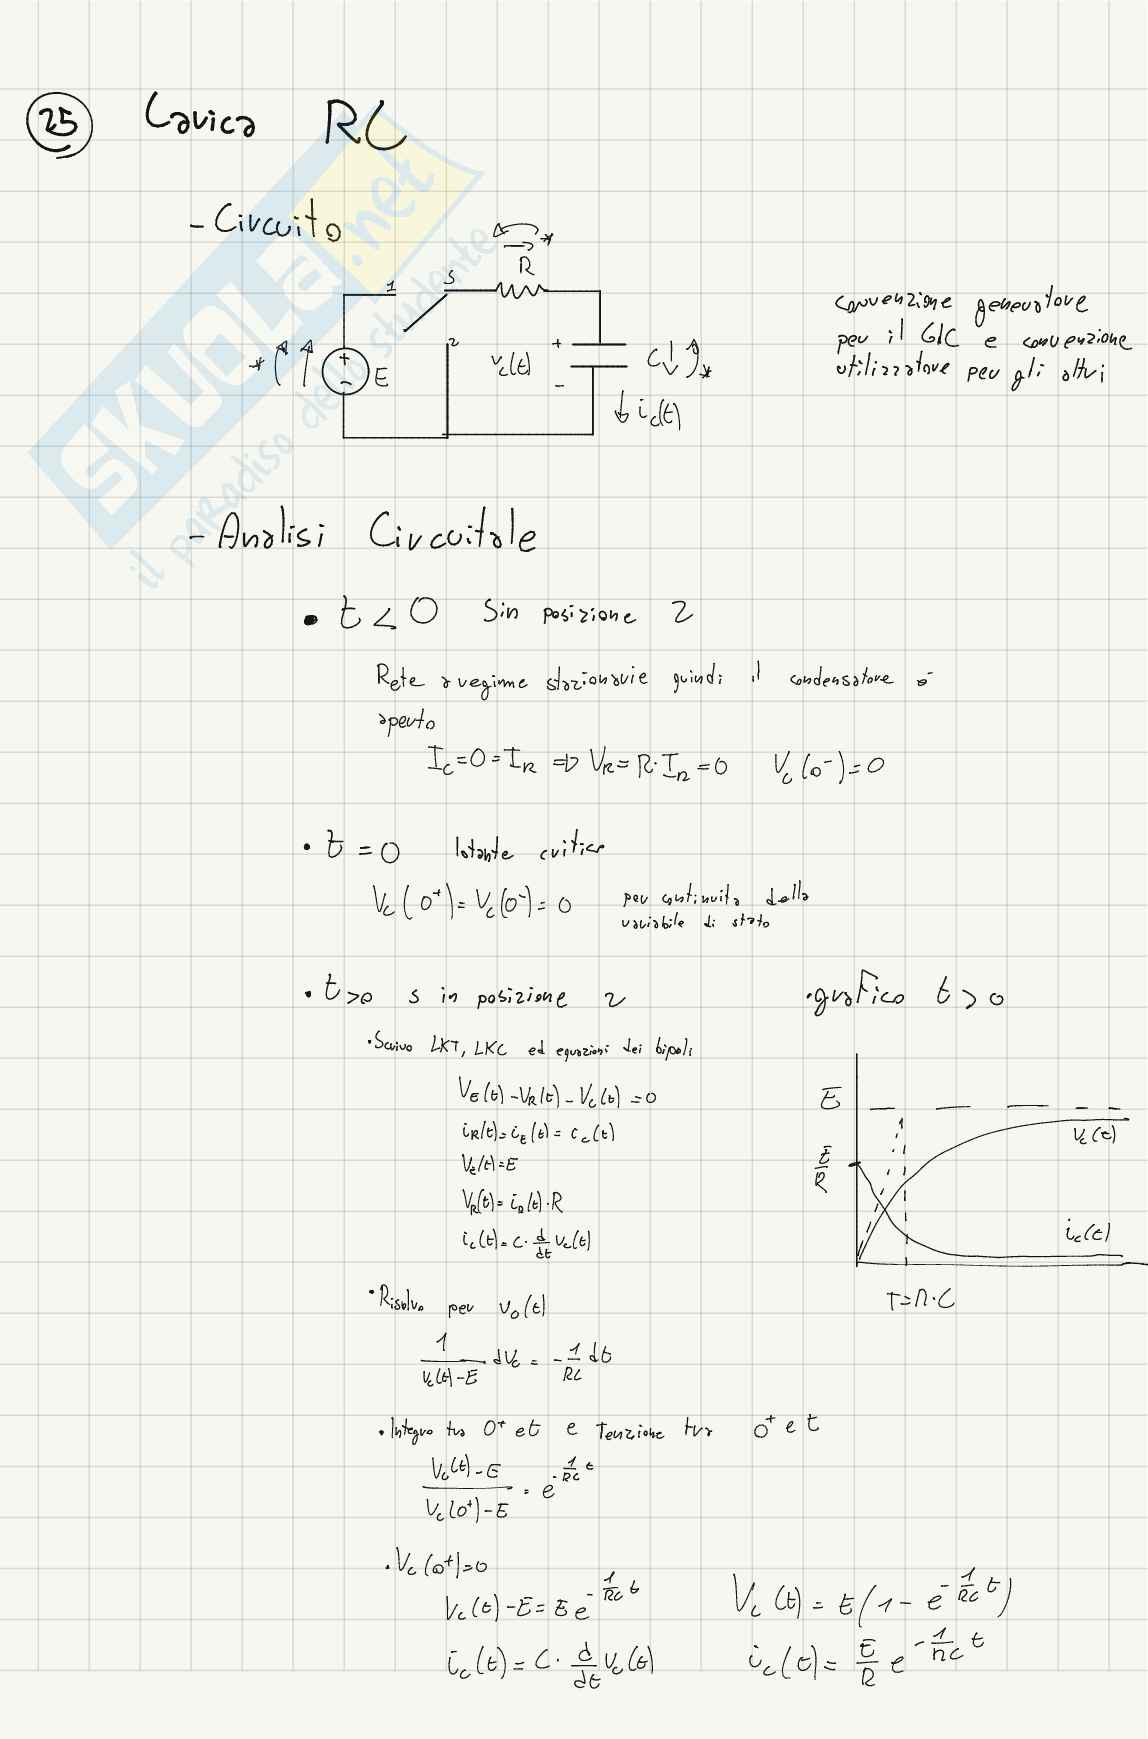 25 Carica RC
- Circuito
R
1 S
2
+
-
E
v_c(t)
+
-
C
i_c(t)
convenzione generatore
per il GIC e convenzione
utilizzatore per gli altri
SKUOLA.net
il paradiso dello studente
- Analisi Circuitale
• t < 0 S in posizione 2
Rete a regime stazionarie quindi il condensatore è
aperto
I_C = 0 = I_R => V_R = R·I_R = 0 V_c(0^-) = 0
• t = 0 Istante critico
V_c(0^+) = V_c(0^-) = 0 per continuità della
variabile di stato
• t > 0 s in posizione 2
• Scrivo LKT, LKC ed equazioni dei bipoli
V_E(t) - V_R(t) - V_c(t) = 0
i_R(t) = i_E(t) = c_c(t)
V_E(t) = E
V_R(t) = i_R(t)·R
i_c(t) = C·d/dt v_c(t)
• Risolvo per v_0(t)
1/(V_c(t) - E) dV_c = -1/RC dt
• Integro tra 0^+ e t e Tenzione tra 0^+ e t
(V_c(t) - E)/(V_c(0^+) - E) = e^(-1/RC t)
• V_c(0^+) = 0
V_c(t) - E = E e^(-1/RC t) V_c(t) = E(1 - e^(-1/RC t))
i_c(t) = C·d/dt v_c(t) i_c(t) = E/R e^(-1/RC t)
• grafico t > 0
E
E/R
v_c(t)
i_c(t)
T = R·C